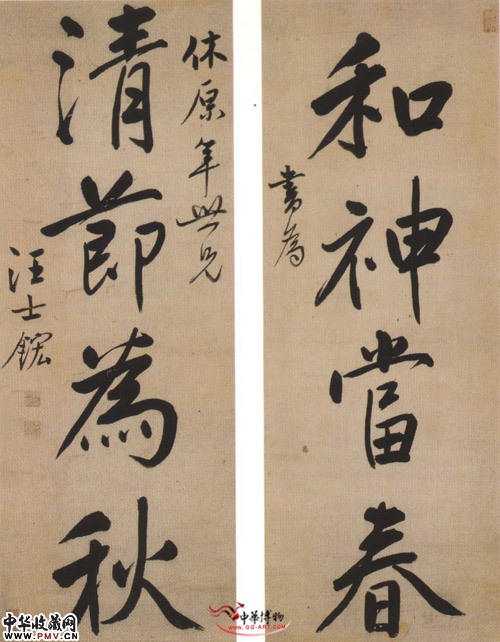 和神當春
書為
休原年世兄
清節為秋
汪士鋐
中华收藏网
www.PMV.CN
中華博物
www.GG-ART.COM